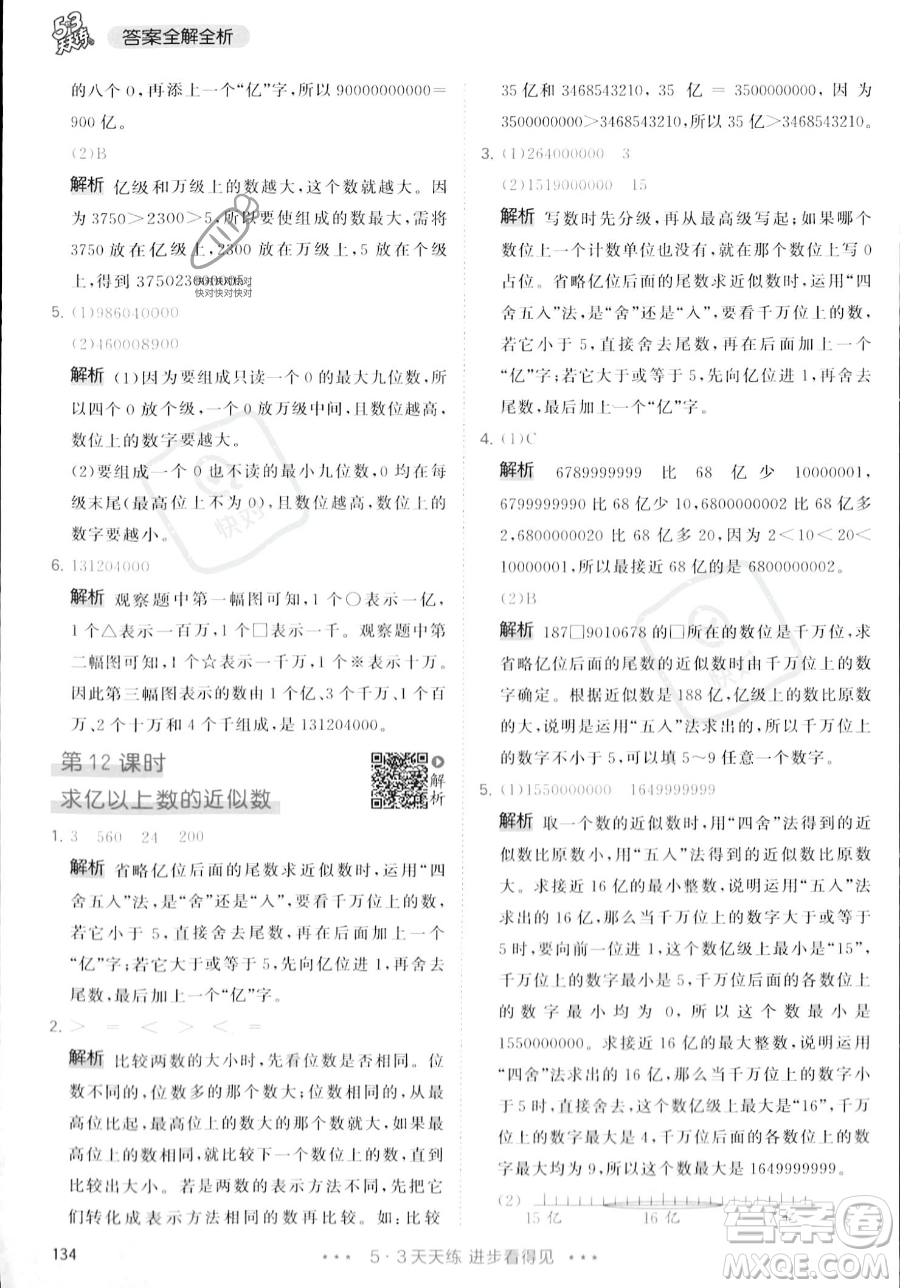 5·3
天天练
答案全解全析
的八个 0，再添上一个“亿”字，所以 90000000000＝
900 亿。
(2)B
解析 亿级和万级上的数越大，这个数就越大。因
为 3750＞2300＞5，所以要使组成的数最大，需将
3750 放在亿级上，2300 放在万级上，5 放在个级
上，得到 375023000005。
快对快对快对
快对快对快对
5. (1)986040000
(2)460008900
解析 (1)因为要组成只读一个 0 的最大九位数，所
以四个 0 放个级，一个 0 放万级中间，且数位越高，
数位上的数字要越大。
(2)要组成一个 0 也不读的最小九位数，0 均在每
级末尾(最高位上不为 0)，且数位越高，数位上的
数字要越小。
快对
6. 131204000
解析 观察题中第一幅图可知，1 个○表示一亿，
1 个△表示一百万，1 个□表示一千。观察题中第
二幅图可知，1 个☆表示一千万，1 个※表示十万。
因此第三幅图表示的数是由 1 个亿、3 个千万、1 个百
万、2 个十万和 4 个千组成，是 131204000。
第 12 课时
求亿以上数的近似数
解析
1. 3 560 24 200
解析 省略亿位后面的尾数求近似数时，运用“四
舍五入”法，是“舍”还是“入”，要看千万位上的数，
若它小于 5，直接舍去尾数，再在数的后面加上一
个“亿”字；若它大于或等于 5，先向亿位进 1，再舍
去尾数，最后加上一个“亿”字。
2. ＞ ＝ ＜ ＞ ＜ ＝
解析 比较两数的大小时，先看位数是否相同。位
数不同的，位数多的那个数大；位数相同的，从最
高位比起，最高位上的数大的那个数就大，如果最
高位上的数相同，就比较下一位，直到比较出大小
为止。若是两个数的表示方法不同，可以先将它
们转化成表示方法相同的数再比较。如：比较
35 亿和 3468543210，35 亿＝3500000000，因为
3500000000＞3468543210，所以 35 亿＞3468543210。
3. (1)264000000 3
(2)1519000000 15
解析 写数时先分级，再从最高级写起；如果哪个
数位上一个计数单位也没有，就在那个数位上写 0
占位。省略亿位后面的尾数求近似数时，运用“四
舍五入”法，是“舍”还是“入”，要看千万位上的数，
若它小于 5，直接舍去尾数，再在数的后面加上一个
“亿”字；若它大于或等于 5，先向亿位进 1，再舍去
尾数，最后加上一个“亿”字。
4. (1)C
解析 6789999999 比 68 亿少 10000001，
6799999990 比 68 亿少 10，6800000002 比 68 亿多
2，6800000020 比 68 亿多 20，因为 2＜10＜20＜
10000001，所以最接近 68 亿的是 6800000002。
(2)B
解析 187□9010678 的□所在的数位是千万位，求
省略亿位后面的尾数的近似数时由千万位上的数
字确定。根据近似数是 188 亿，亿级上的数比原数
的大，说明是运用“五入”求出的，所以千万位上的
数字大于或等于 5，可以填 5～9 任意一个数字。
快对
5. (1)1550000000 1649999999
解析 取一个数的近似数时，用“四舍”法得到的近
似数比原数小，用“五入”法得到的近似数比原数
大。求接近 16 亿的最小整数，说明是运用“五入”法
求出的 16 亿，那么当千万位上的数字大于或等于
5 时，要向前一位进 1，这个数亿级上最小是“15”，
千万位上的数字最小是 5，千万位后面的各数位上
的数字最小均为 0，所以这个数最小是
1550000000。求接近 16 亿的最大整数，说明是运用
“四舍”法求出的 16 亿，那么当千万位上的数字小
于 5 时，直接舍去，这个数亿级上最大是“16”，千
万位上的数字最大是 4，千万位后面的各数位上的
数字最大均为 9，所以这个数最大是 1649999999。
(2)
15 亿 16 亿
134
5·3 天天练 进步看得见
答案卷
MXQE.COM